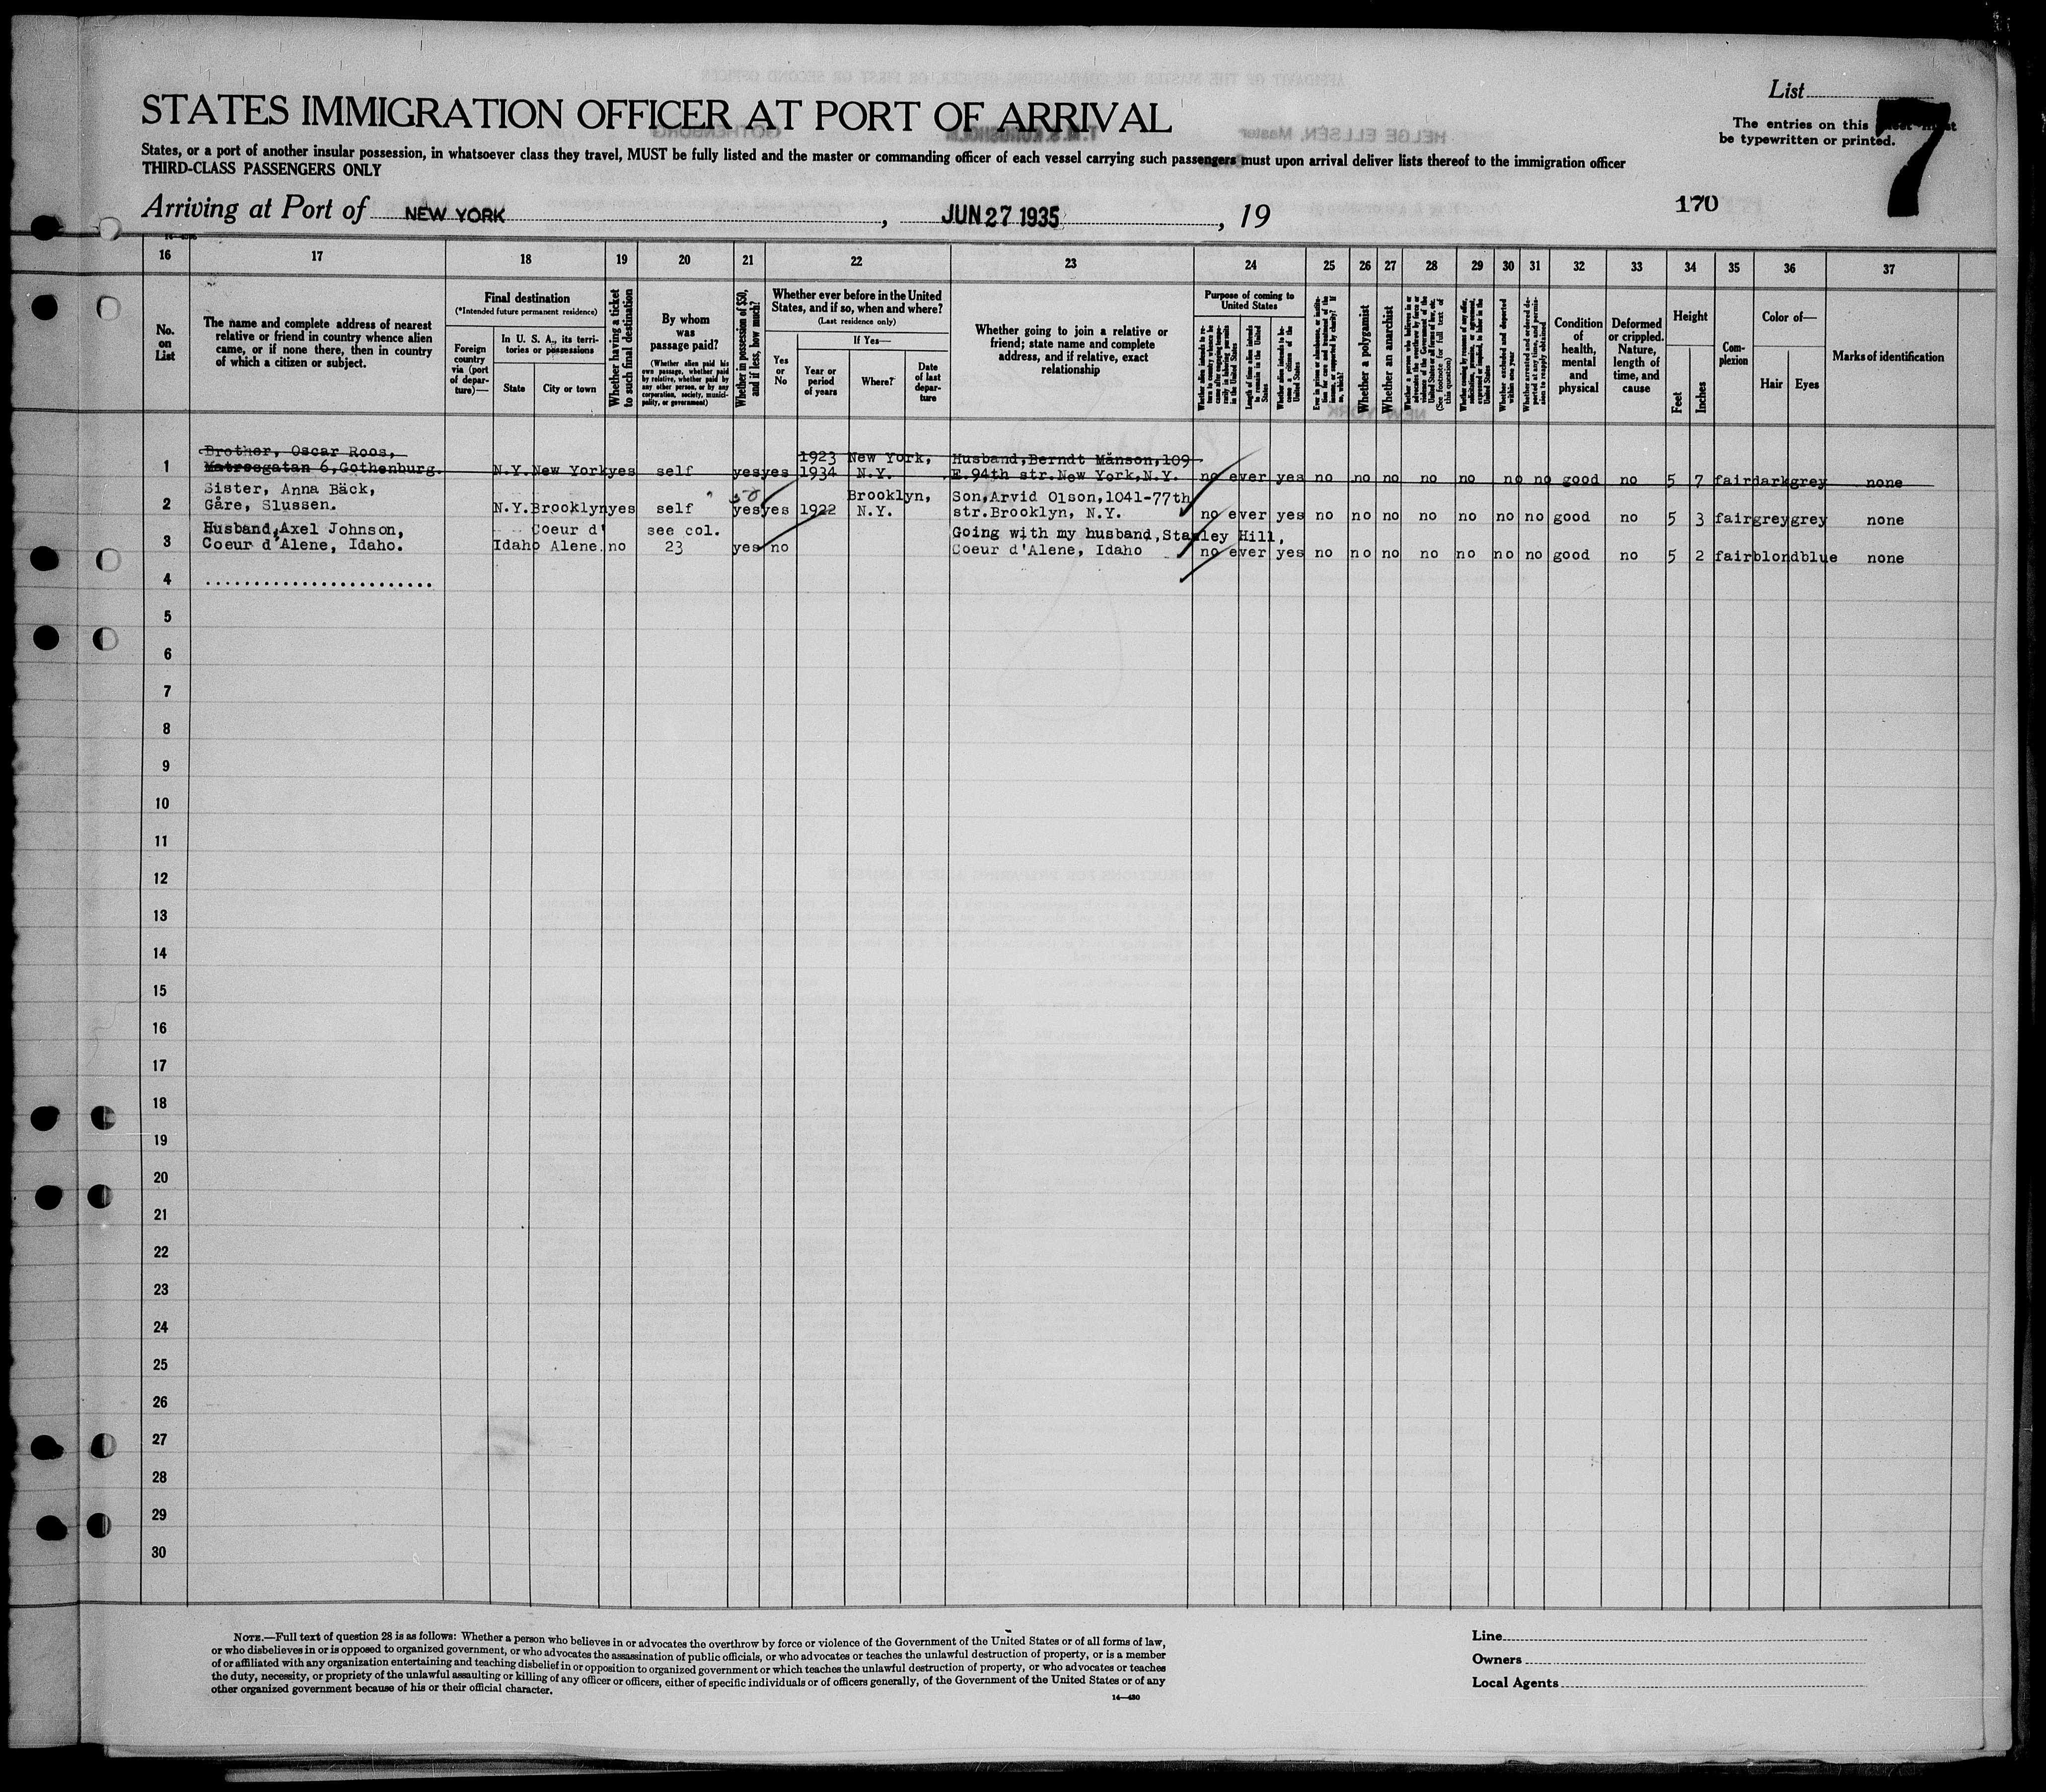 List
STATES IMMIGRATION OFFICER AT PORT OF ARRIVAL
7
The entries on this
be typewritten or printed.
States, or a port of another insular possession, in whatsoever class they travel, MUST be fully listed and the master or commanding officer of each vessel carrying such passengers must upon arrival deliver lists thereof to the immigration officer
THIRD-CLASS PASSENGERS ONLY
170
Arriving at Port of NEW YORK , JUN 27 1935 , 19
16 17 18 19 20 21 22 23 24 25 26 27 28 29 30 31 32 33 34 35 36 37
No.
on
List
The name and complete address of nearest
relative or friend in country whence alien
came, or if none there, then in country
of which a citizen or subject.
Final destination
(*Intended future permanent residence)
Foreign
country
via (port
of depar-
ture)—
In U. S. A., its terri-
tories or possessions
State
City or town
Whether having a ticket
to such final destination
By whom
was
passage paid?
(Whether alien paid his
own passage, whether paid
by relative, whether paid by
any other person, or by any
corporation, society, munici-
pality, or government)
Whether in possession of $50,
and if less, how much?
Whether ever before in the United
States, and if so, when and where?
(Last residence only)
Yes
or
No
If Yes—
Year or
period
of years
Where?
Date
of last
depar-
ture
Whether going to join a relative or
friend; state name and complete
address, and if relative, exact
relationship
Purpose of coming to
United States
Length of time alien intends
to remain in the United
States
Whether alien intends to be-
come a citizen of the
United States
Whether a polygamist
Whether an anarchist
Condition
of
health,
mental
and
physical
Deformed
or crippled.
Nature,
length of
time, and
cause
Height
Feet
Inches
Com-
plexion
Color of—
Hair
Eyes
Marks of identification
Brother, Oscar Roos, 1923 New York, Husband,Berndt Månson,109
1 Matrosgatan 6,Gothenburg. N.Y. New York yes self yes yes 1934 N.Y. E.94th str.New York,N.Y. no ever yes no no no no no no no good no 5 7 fair dark grey none
Sister, Anna Bäck, 50 Brooklyn, Son,Arvid Olson,1041-77th
2 Gåre, Slussen. N.Y. Brooklyn yes self yes yes 1922 N.Y. str.Brooklyn, N.Y. no ever yes no no no no no no no good no 5 3 fair grey grey none
Husband,Axel Johnson, Coeur d' see col. Going with my husband,Stanley Hill,
3 Coeur d'Alene, Idaho. Idaho Alene. no 23 yes no Coeur d'Alene, Idaho no ever yes no no no no no no no good no 5 2 fair blond blue none
4 ..........................
5
6
7
8
9
10
11
12
13
14
15
16
17
18
19
20
21
22
23
24
25
26
27
28
29
30
NOTE.—Full text of question 28 is as follows: Whether a person who believes in or advocates the overthrow by force or violence of the Government of the United States or of all forms of law,
or who disbelieves in or is opposed to organized government, or who advocates the assassination of public officials, or who advocates or teaches the unlawful destruction of property, or is a member
of or affiliated with any organization entertaining and teaching disbelief in or opposition to organized government or which teaches the unlawful destruction of property, or who advocates or teaches
the duty, necessity, or propriety of the unlawful assaulting or killing of any officer or officers, either of specific individuals or of officers generally, of the Government of the United States or of any
other organized government because of his or their official character.
14—430
Line
Owners
Local Agents